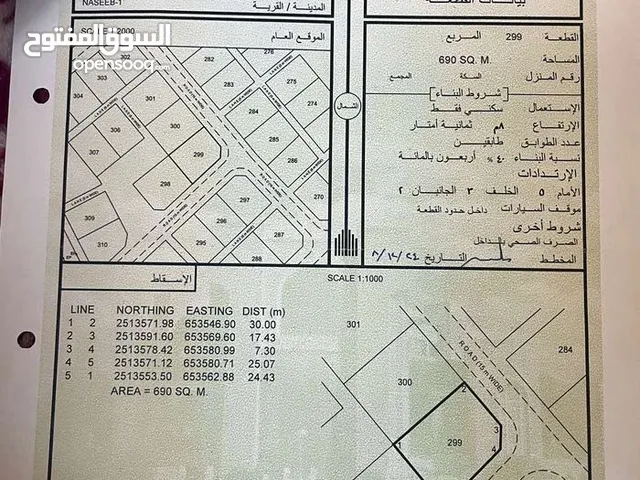 NASEEB-1
المدينة / القرية :
بيانات القطعة
السوق المفتوح
opensooq.com
SCALE 1:2000
الموقع العام
القطعة 299 المربع
المساحة 690 SQ. M.
رقم المنزل السكة المجمع
شروط البناء
الإستعمال سكني فقط
الإرتفاع ٨م ثمانية أمتار
عدد الطوابق طابقين
نسبة البناء ٤٠٪ أربعون بالمائة
الإرتدادات
الأمام ٥ الخلف ٣ الجانبان ٢
موقف السيارات داخل حدود القطعة
شروط أخرى
الصرف الصحي بالداخل
المخطط التاريخ
الشمال
276
282
283
275
274
301
303
304
300
307
299
298
284
285
286
270
309
310
297
296
295
287
288
الإسقاط
SCALE 1:1000
LINE NORTHING EASTING DIST (m)
1 2 2513571.98 653546.90 30.00
2 3 2513591.60 653569.60 17.43
3 4 2513578.42 653580.99 7.30
4 5 2513571.12 653580.71 25.07
5 1 2513553.50 653562.88 24.43
AREA = 690 SQ. M.
301
300
299
284
ROAD (15 m WIDE)
1
2
3
4